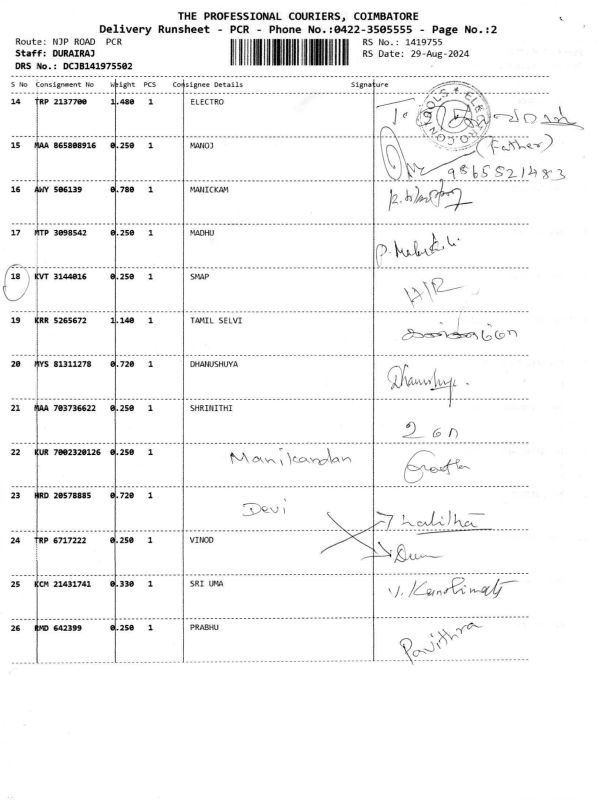 THE PROFESSIONAL COURIERS, COIMBATORE
Delivery Runsheet - PCR - Phone No.:0422-3505555 - Page No.:2
Route: NJP ROAD PCR RS No.: 1419755
Staff: DURAIRAJ RS Date: 29-Aug-2024
DRS No.: DCJB141975502
S No Consignment No Weight PCS Consignee Details Signature
14 TRP 2137700 1.480 1 ELECTRO
15 MAA 865808916 0.250 1 MANOJ (Father)
9865521483
16 AWY 506139 0.780 1 MANICKAM
17 MTP 3098542 0.250 1 MADHU
18 KVT 3144016 0.250 1 SMAP
19 KRR 5265672 1.140 1 TAMIL SELVI
20 MYS 81311278 0.720 1 DHANUSHUYA Dhanushya.
21 MAA 703736622 0.250 1 SHRINITHI
22 KUR 7002320126 0.250 1 Manikandan Geetha
23 HRD 20578885 0.720 1 Devi Lalitha
24 TRP 6717222 0.250 1 VINOD
25 KCM 21431741 0.330 1 SRI UMA
26 RMD 642399 0.250 1 PRABHU Pavithra